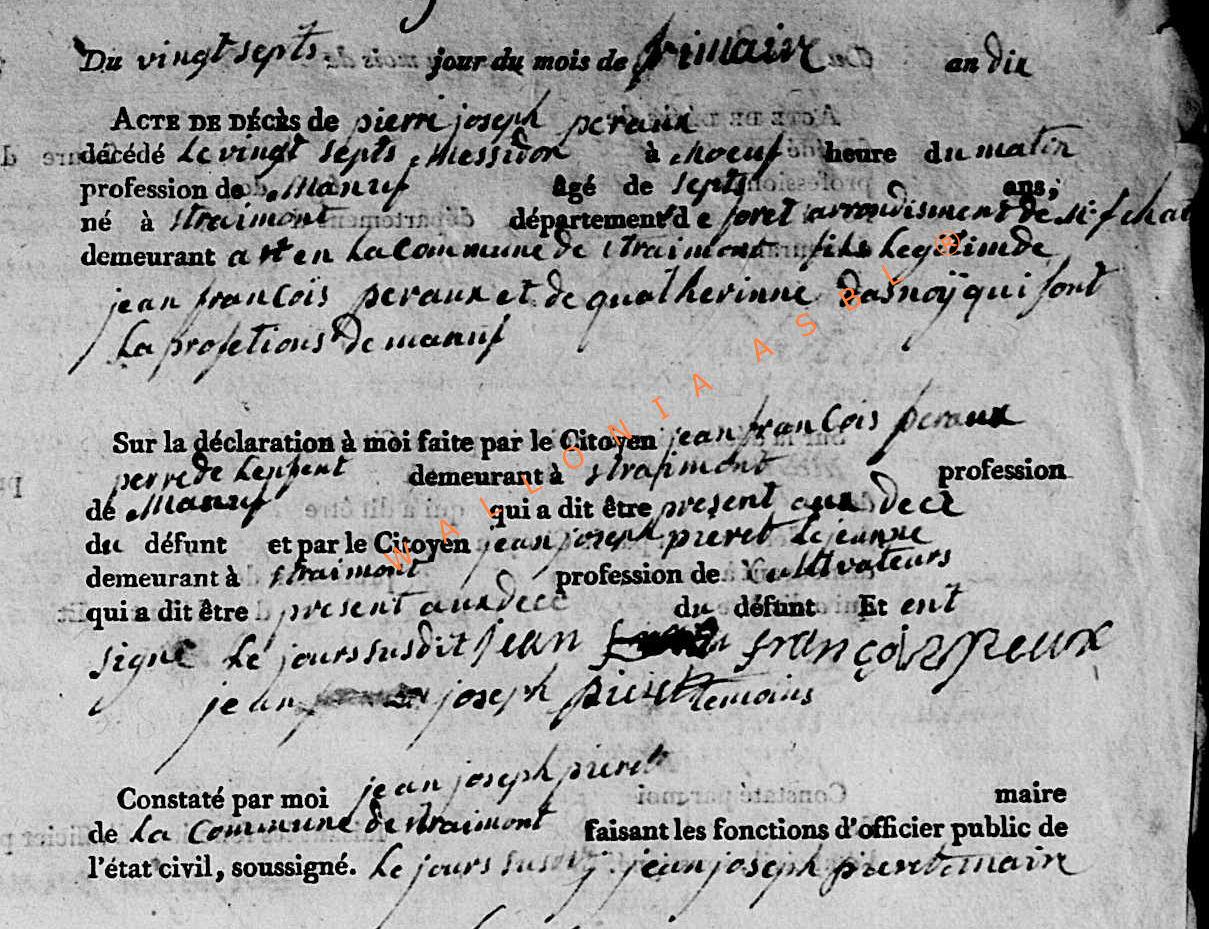 Du vingt septs jour du mois de frimaire an dix
ACTE DE DÉCÈS de pierre joseph peraux
décédé Le vingt septs Messidor à neuf heure du matin
profession de Manuf âgé de septs ans,
né à straimont département de foret arrondisment de nf chat
demeurant art en La Commune de straimont fils Legitimde
jean françois peraux et de quatherinne dasnoÿ qui font
La profetions de manuf
Sur la déclaration à moi faite par le Citoyen jean francois peraux
perre de Lenfent demeurant à straimont profession
de Manuf qui a dit être present aux decé
du défunt et par le Citoyen jean joseph pieret Le jeanne
demeurant à straimont profession de Cultivateurs
qui a dit être present aux decé du défunt Et ent
signé Le jours susdit jean françois peraux
jean joseph pieret temoins
Constaté par moi jean joseph pieret maire
de La Commune de straimont faisant les fonctions d'officier public de
l'état civil, soussigné. Le jours susdit jean joseph pieret maire
WALLONIA ASBL ®